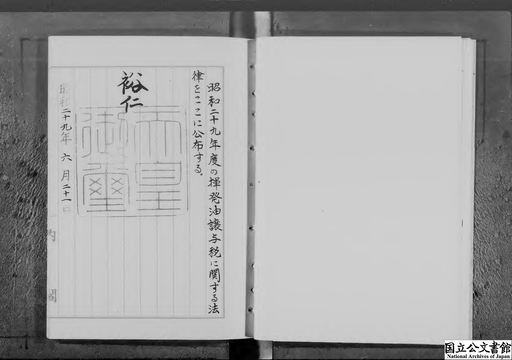 昭和二十九年度の揮発油譲与税に関する法
律をここに公布する。
裕仁
天皇御璽
昭和二十九年六月二十一日
内閣
国立公文書館
National Archives of Japan